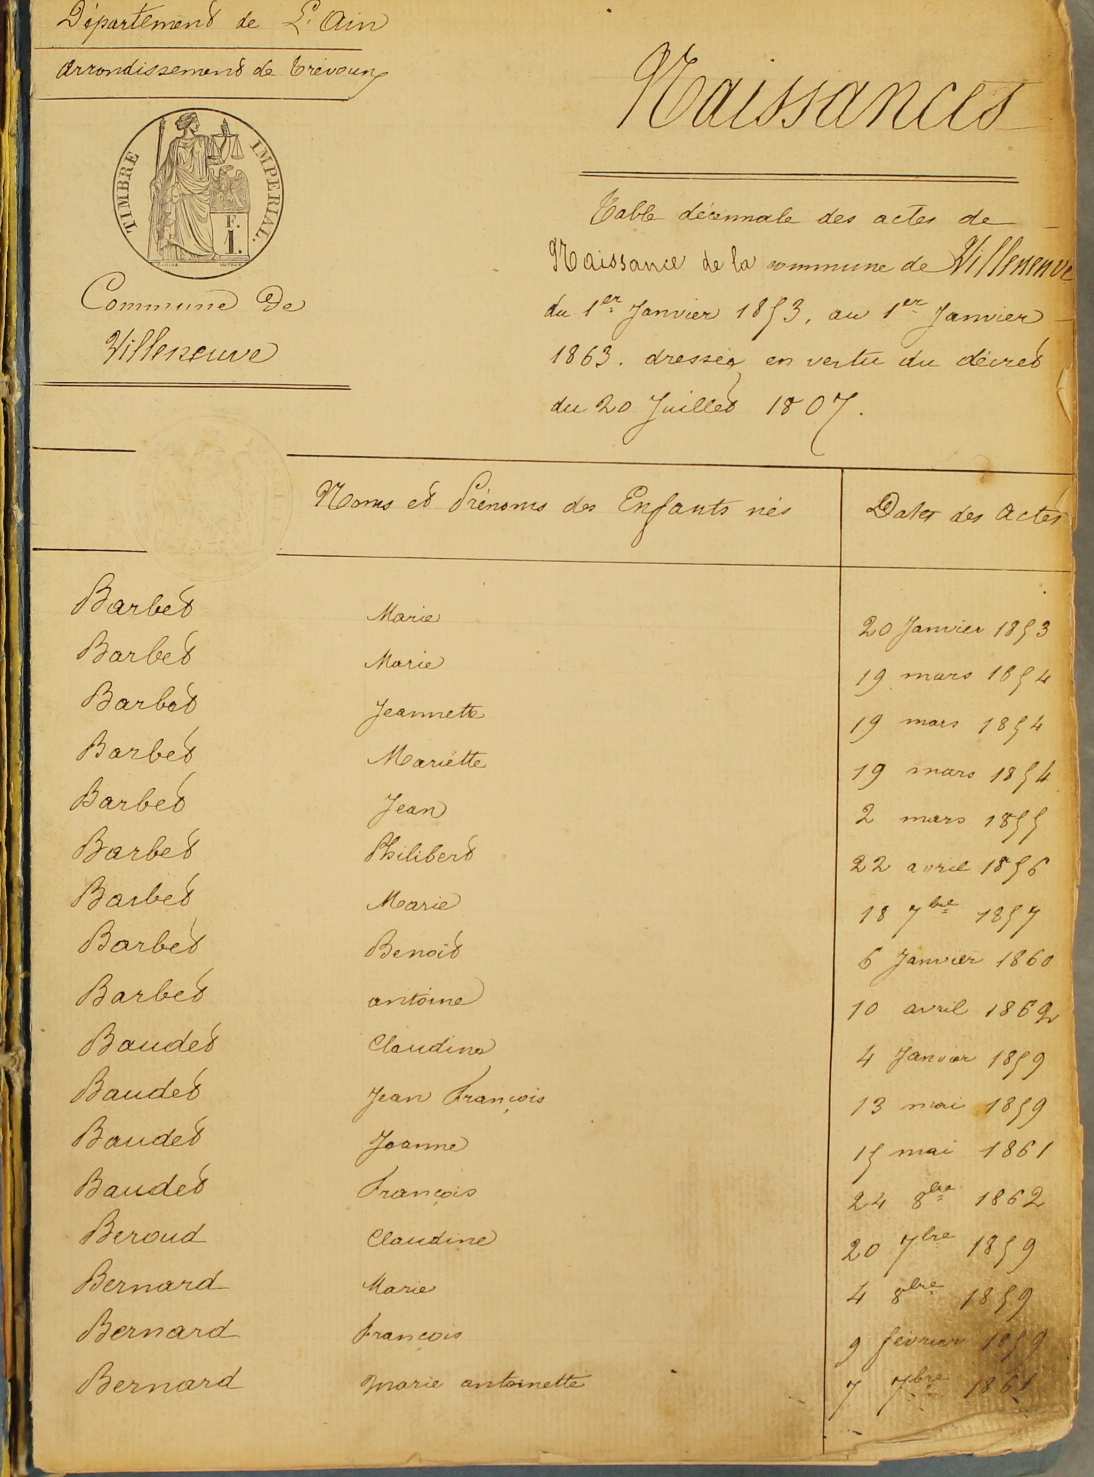 Département de L'Ain
Arrondissement de Trévoux
TIMBRE IMPERIAL.
F.
1.
Commune De
Villeneuve
Naissances
Table décennale des actes de
Naissance de la commune de Villeneuve
du 1er Janvier 1853, au 1er Janvier
1863. dressée en vertu du décret
du 20 Juillet 1807.
Noms et Prénoms des Enfants nés Dates des Actes
Barbet Marie 20 Janvier 1853
Barbet Marie 19 mars 1854
Barbet Jeannette 19 mars 1854
Barbet Mariette 19 mars 1854
Barbet Jean 2 mars 1855
Barbet Philibert 22 avril 1856
Barbet Marie 18 7bre 1857
Barbet Benoit 6 Janvier 1860
Barbet antoine 10 avril 1862
Baudet Claudine 4 Janvier 1859
Baudet Jean François 13 mai 1859
Baudet Jeanne 15 mai 1861
Baudet François 24 8bre 1862
Beroud Claudine 20 7bre 1859
Bernard Marie 4 8bre 1859
Bernard François 9 février 1859
Bernard Marie antoinette 7 7bre 1861